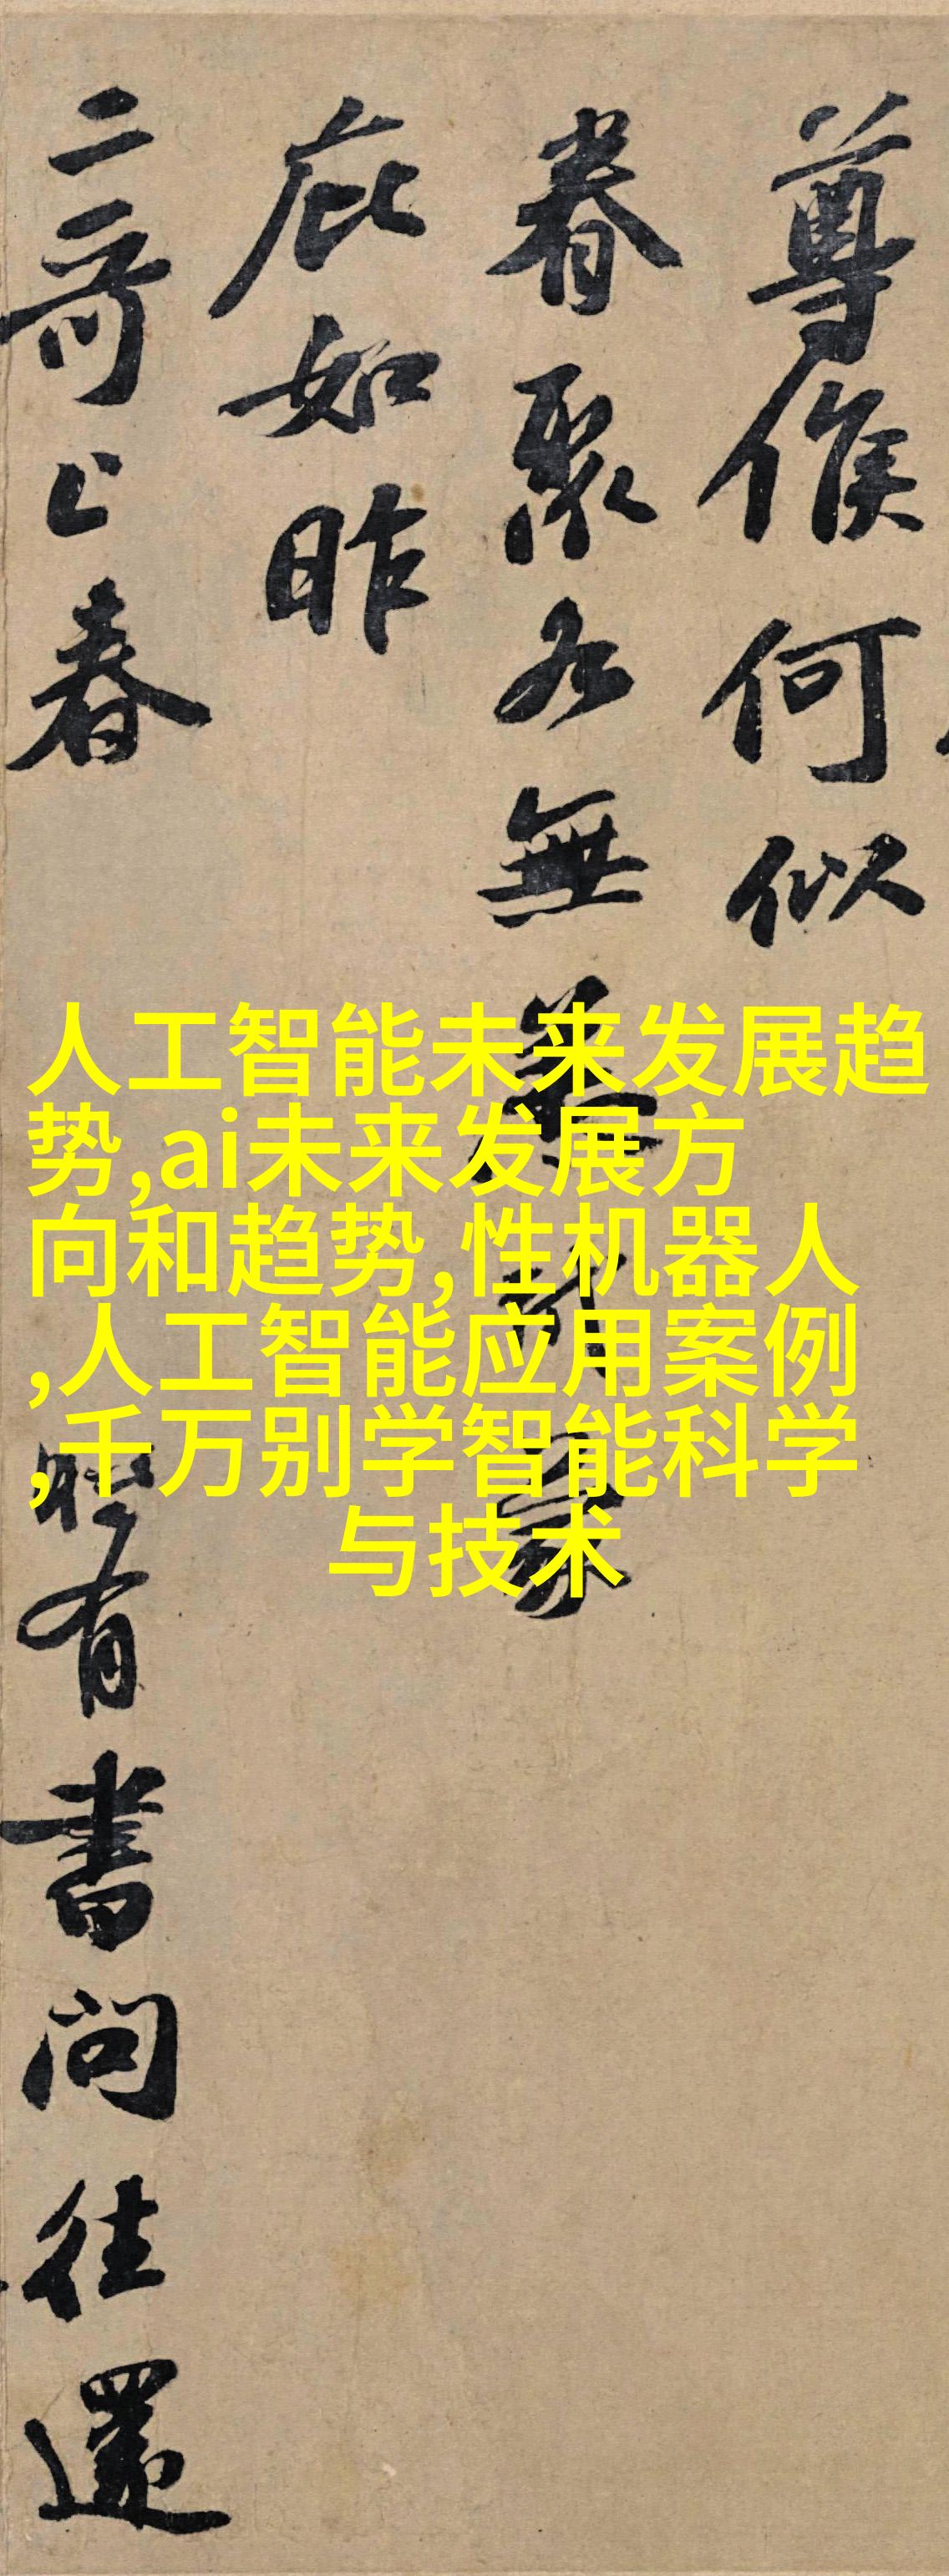 尊候何似
眷聚各無
庇如昨
二哥上春
有書問往還
人工智能未来发展趋
势,ai未来发展方
向和趋势,性机器人
,人工智能应用案例
,千万别学智能科学
与技术